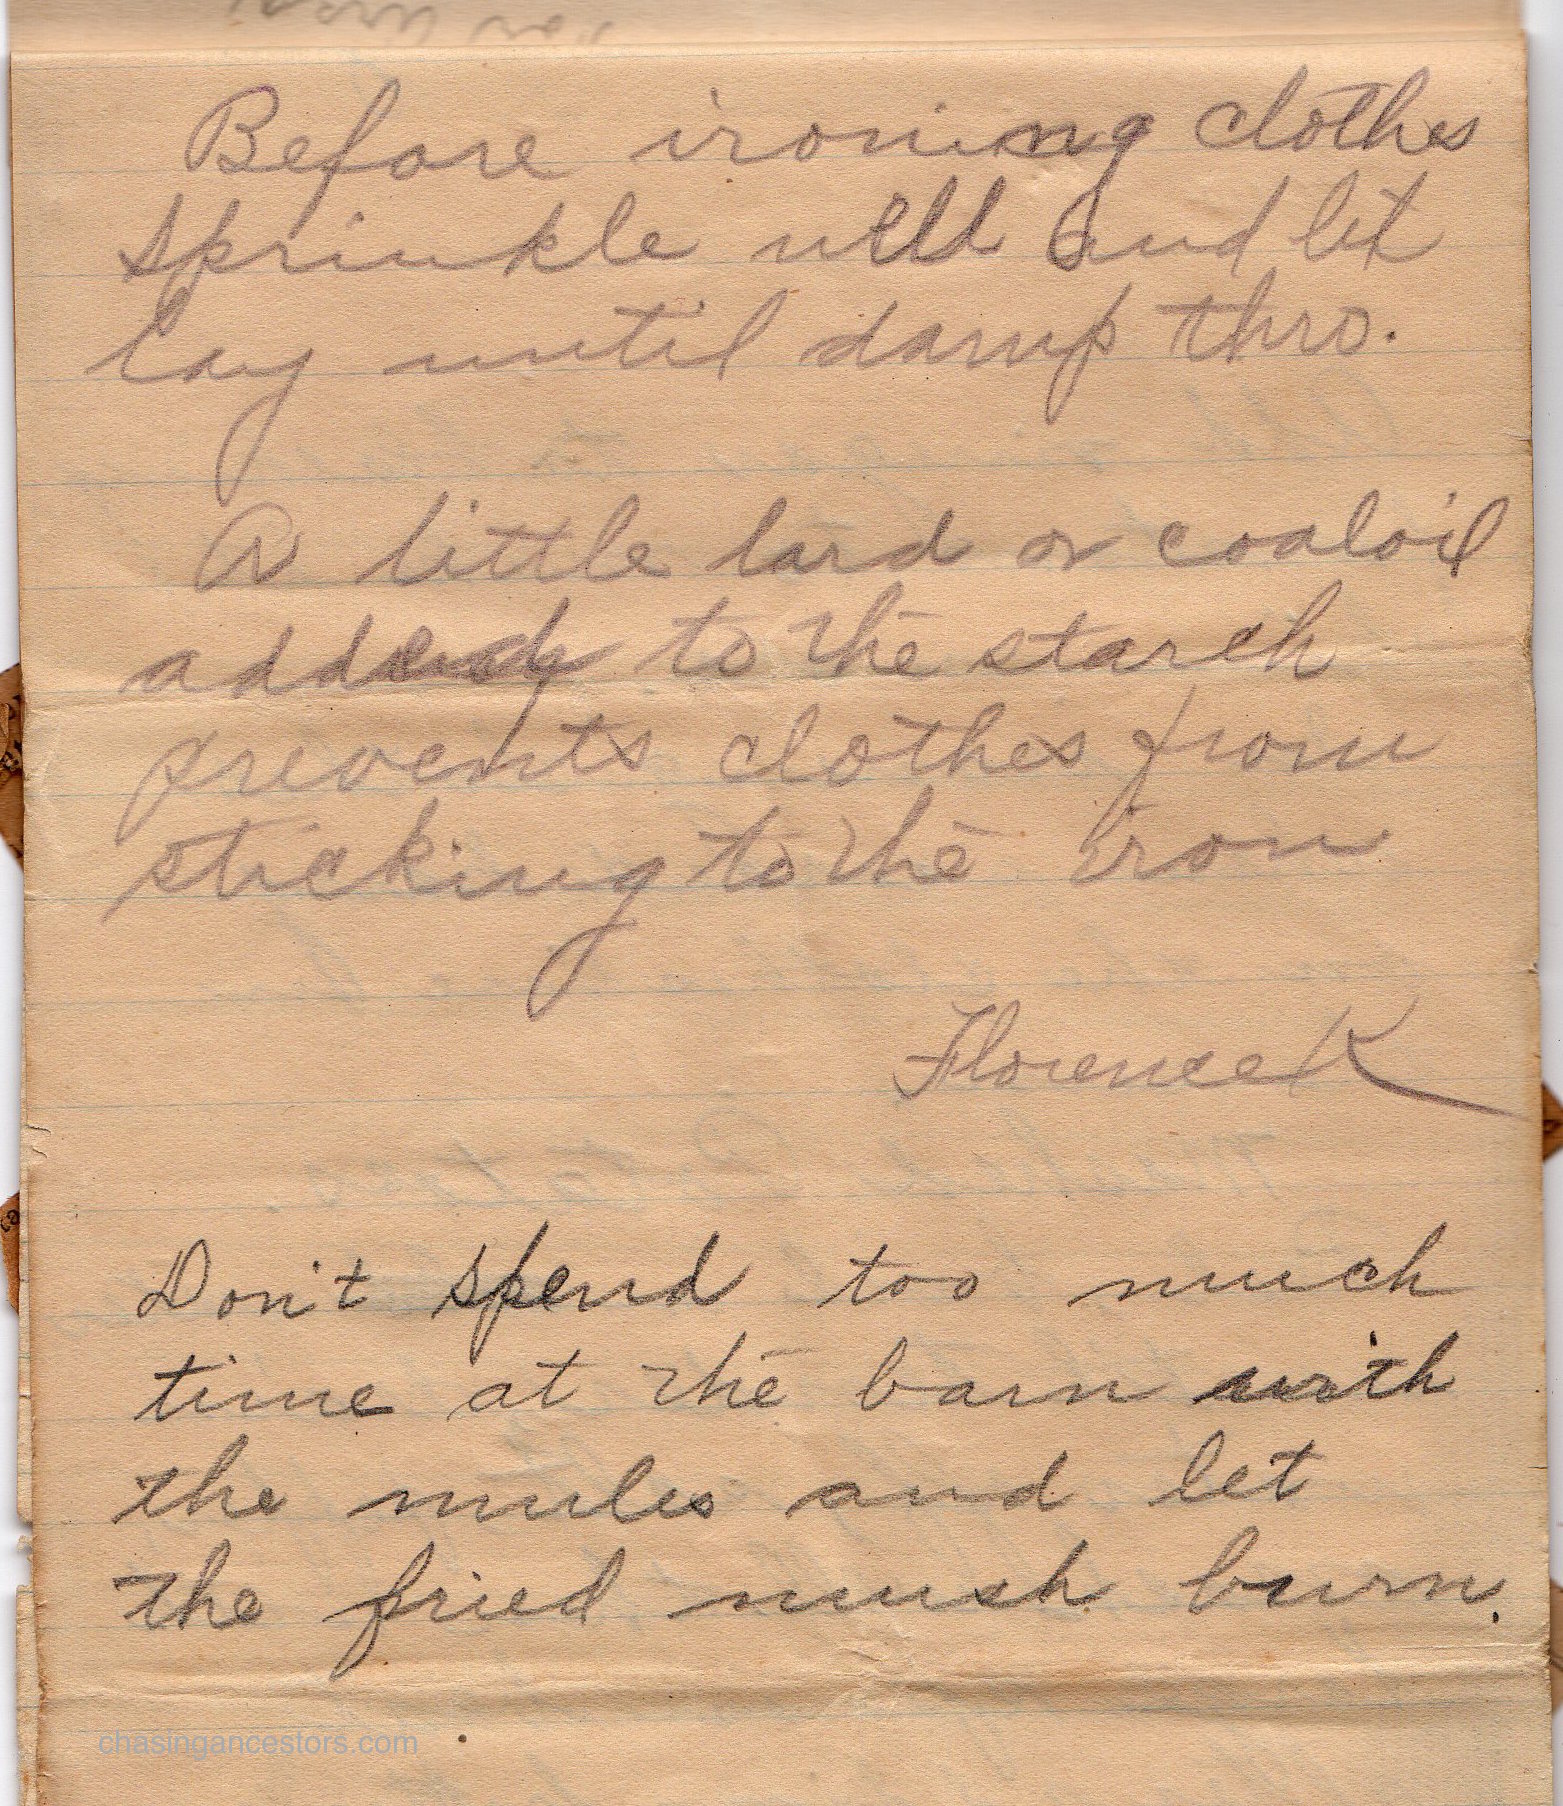 Before ironing clothes
sprinkle well and let
lay until damp thro.
A little lard or coaloil
added to the starch
prevents clothes from
sticking to the iron
Florence K
Don't spend too much
time at the barn with
the mules and let
the fried mush burn.
chasingancestors.com